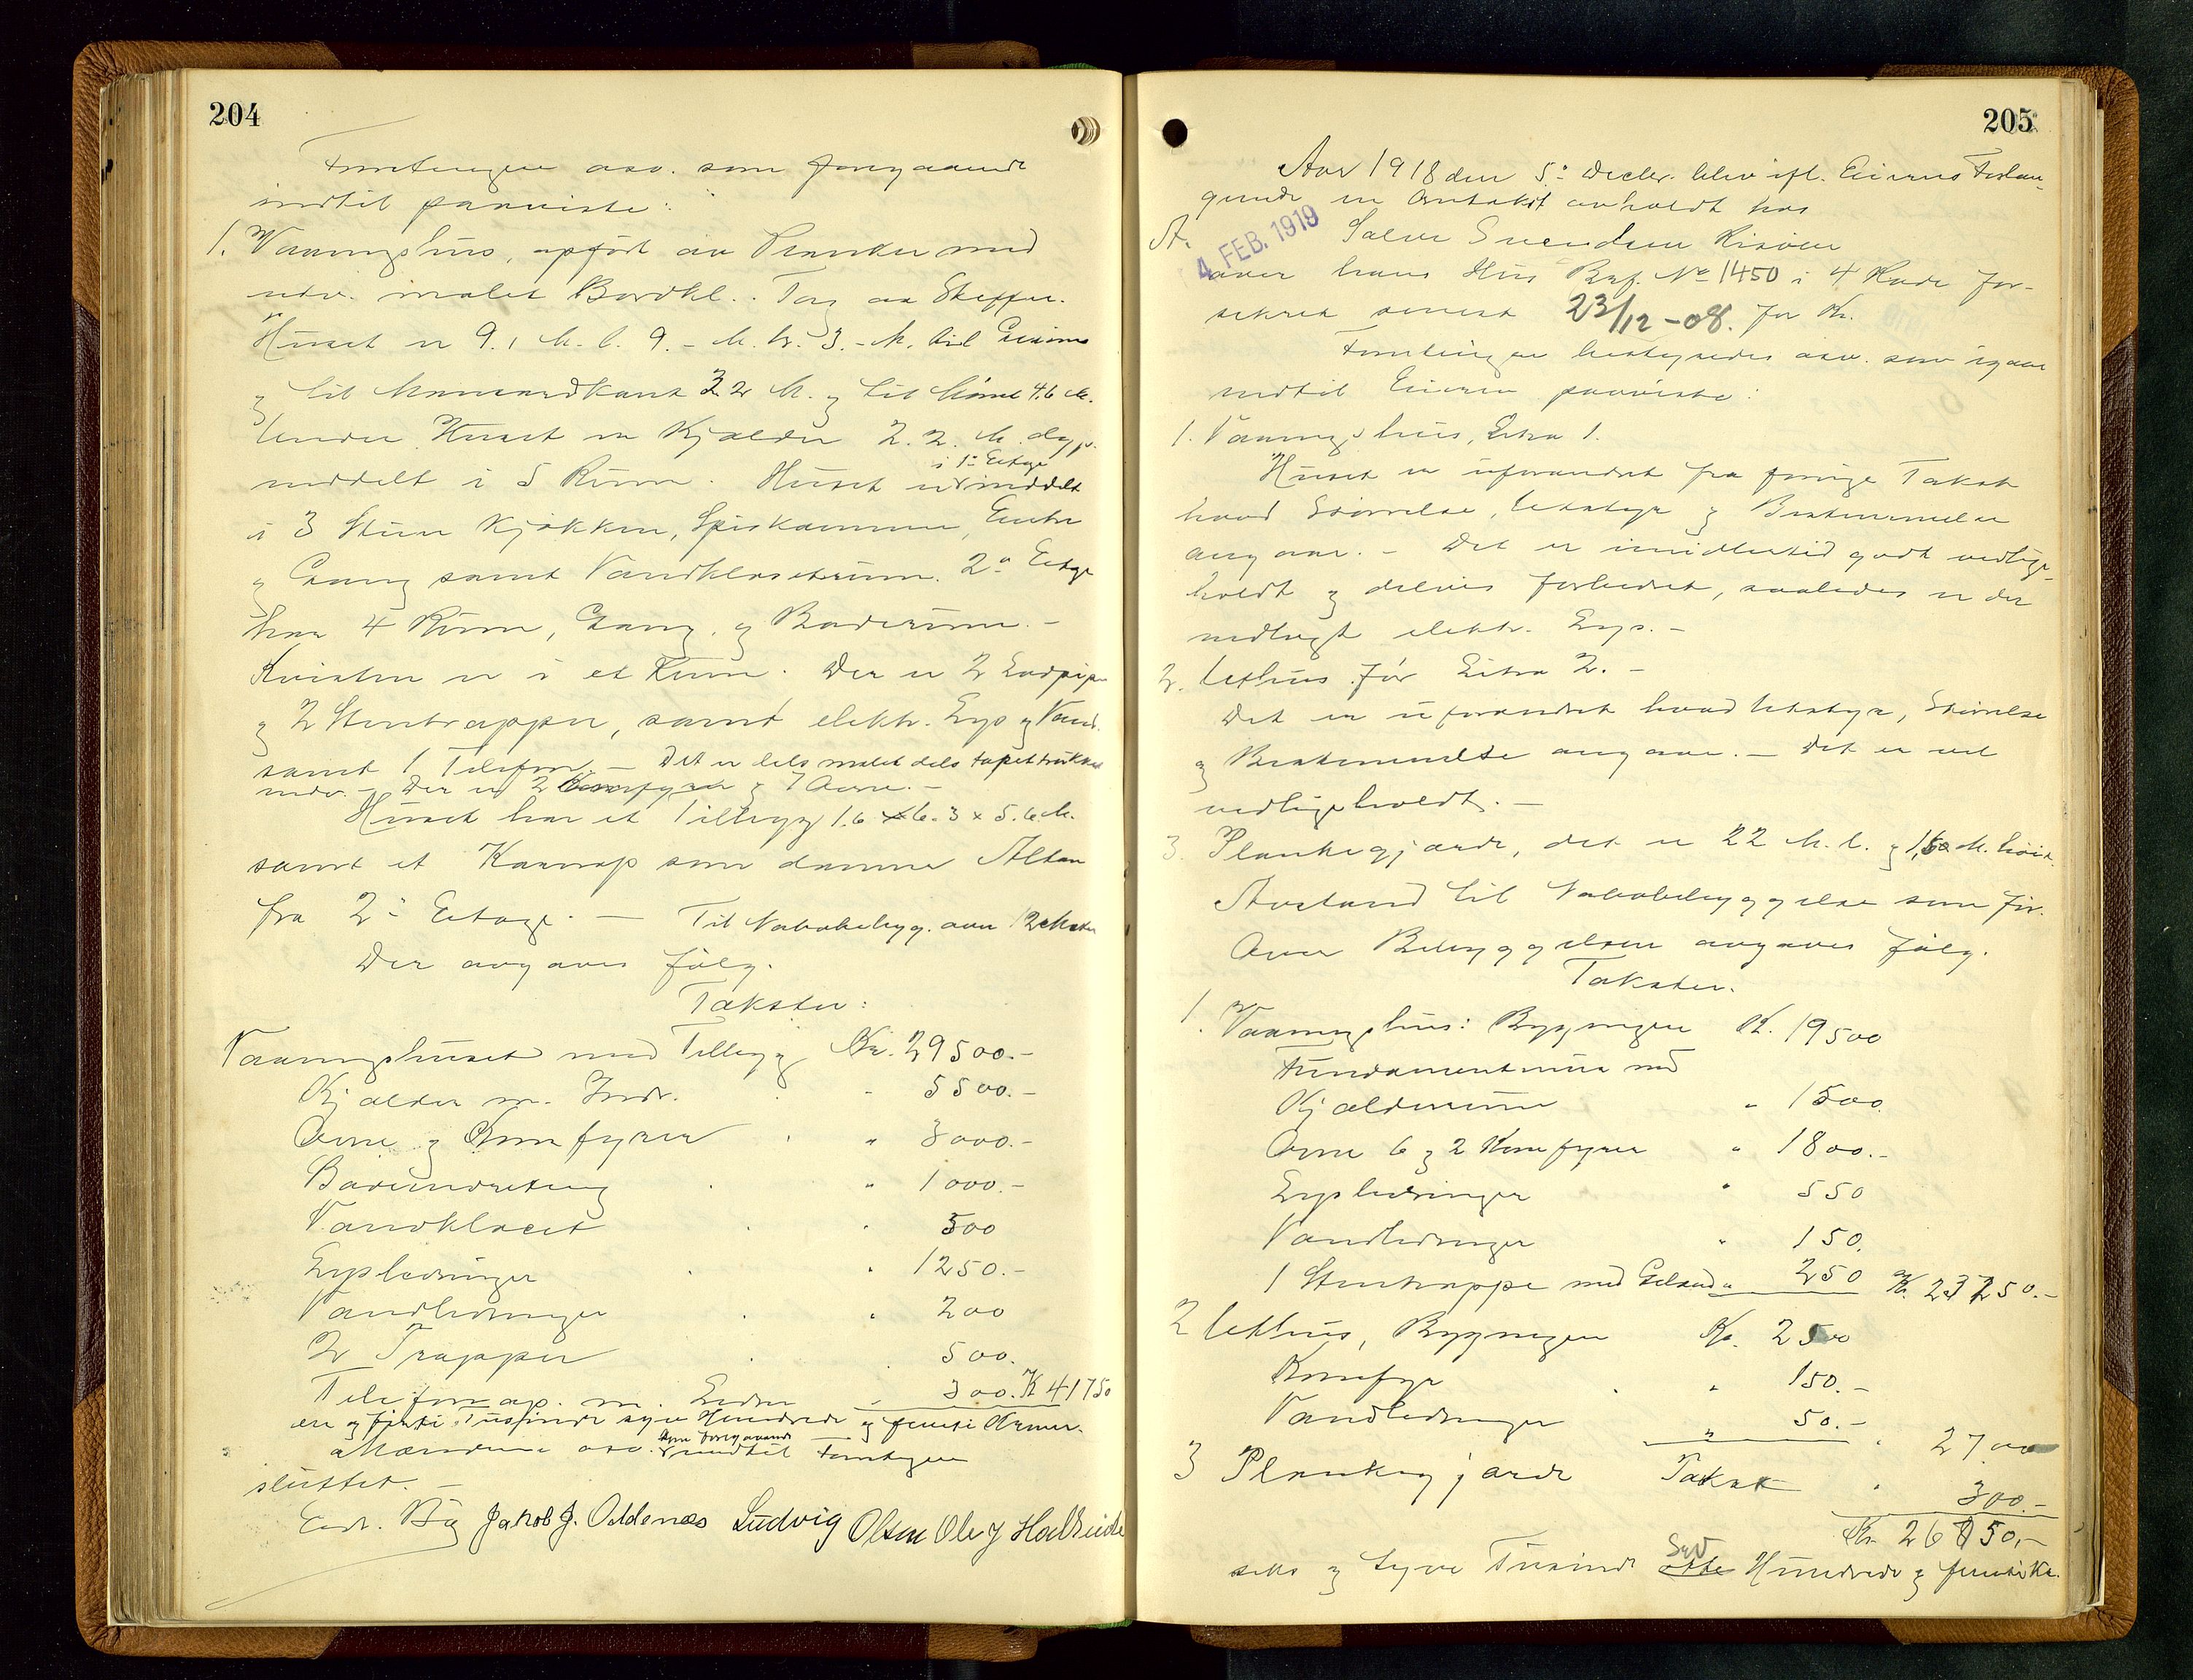 204
Forretningen osv. som foregaaende
indtil paaviste:
1. Vaaningshus, opført av Planker med
udv. malet Bordkl. Tag av Skiffer.
Huset er 9.1 M. l. 9.- M. br. 3.- M. til Gesims
og til Mansardkant 3.2 M. og til Mønet 4.6 M.
Under Huset er Kjælder 2.2. M. dyp.
inddelt i 5 Rum. Huset er i 1ste Etage inddelt
i 3 Stuer Kjøkken, Spiskammer, Entre
og Gang samt Vandklosetrum. 2den Etage
har 4 Rum, Gang og Baderum.-
Kvisten er i et Rum. Der er 2 Lodpiper
og 2 Stentrapper, samt elektr. Lys og Vand.
samt 1 Telefon.- Det er dels malet dels tapettrukket
indv.- Der er 2 Komfyrer og 7 Ovne.-
Huset har et Tillegg 1.6 x 6.3 x 5.6 M.
samt et Karnap som danner Altan
fra 2den Etage.- Til Nabobebyg. over 12 Meter
Der avgaves følg.
Takster:
Vaaningshuset med Tillegg Kr. 29500.-
Kjælder m. Indr. " 5500.-
Ovne og Komfyrer " 3000.-
Badeindretning " 1000.-
Vandkloset " 500
Lysledninger " 1250.-
Vandledninger " 200
2 Trapper 500.
Telefonap. m. Ledn. " 300. Kr 41750
en og firti Tusinde syv Hundrede og femti Kroner.
Mændene osv. som foregaaende indtil Forretningen
sluttet.-
Endr. Bø Jakob J. Oddenes Ludvig Olsen Ole J Halseide
205
Aar 1918 den 5te Decbr. blev ifl. Eierens Forlan-
gende en Omtakst avholdt hos
A. Salve Svendsen Risøen
4. FEB. 1919
over hans Hus Brf. No 1450 i 4 Rode for-
sikret senest 23/12-08. for Kr.
Forretningen bestyredes osv. som igaar
indtil Eieren paaviste:
1. Vaaningshus, Litra 1.
Huset er uforandret fra forrige Takst
hvad Størrelse, Utstyr og Bestemmelse
angaar.- Det er imidlertid godt vedlige-
holdt og delvis forbedret, saaledes er der
indlagt elektr. Lys.-
2. Uthus før Litra 2.-
Det er uforandret hvad Utstyr, Størrelse
og Bestemmelse angaar.- Det er vel
vedligeholdt.-
3. Plankegjærde, det er 22 M. l. og 1,50 M. høit.
Avstand til Nabobebyggelse som før.
Over Bebyggelsen avgaves følg.
Takster.
1. Vaaningshus: Bygningen K. 19500
Fundamentmur med
Kjælderrum " 1500.
Ovne 6 og 2 Komfyrer " 1800.-
Lysledninger " 550
Vandledninger " 150.
1 Stentrappe med Gelænder " 250 Kr. 23750.-
2 Uthus, Bygningen Kr. 2500
Komfyr " 150.-
Vandledninger " 50.- " 2700
3 Plankegjærde Takst " 300.-
Kr. 26750.-
seks og tyve Tusinde otte Syv Hundrede og femti Kr.